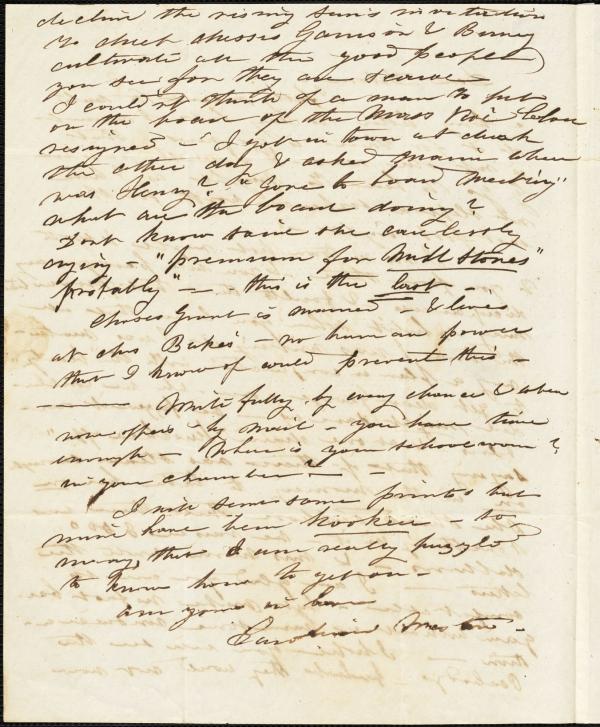 decline the rising sun's invitation
to meet Messrs Garrison & Birney
cultivate all the good people
you see for they are scarce
I couldn't think of a man to put
on the board of the Mass
resigned - I got in town at dusk
the other day & asked where
was Henry? "Gone to board meeting"
what are the board doing?
Dont know said she carelessly
"premium for Mill Stones"
probably" - this is the last -
Moses Grant is married - & lives
at Chs Bakers - no human power
that I know of could prevent this -
Write fully by every chance & when
none offers by mail - you have time
enough - Where is your school room?
in your chamber? -
I will send some prints but
mine have been hooked - so
many, that I am really puzzled
to know how to get on -
am yours in love
Caroline Weston -